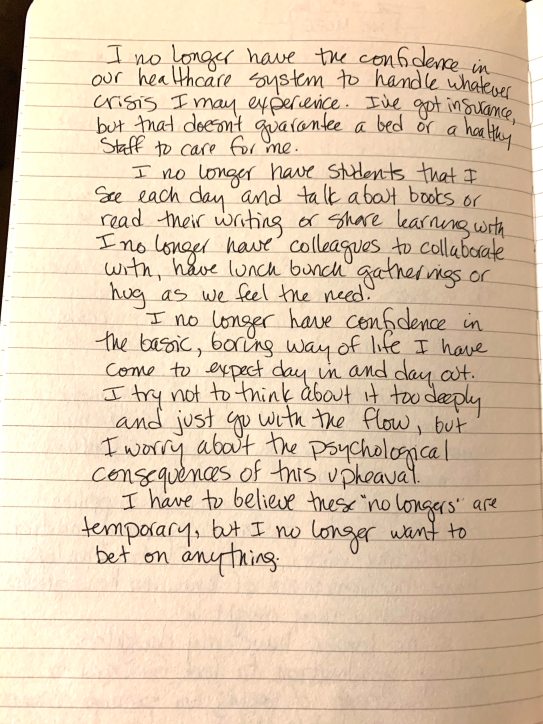 I no longer have the confidence in
our healthcare system to handle whatever
crisis I may experience. I've got insurance,
but that doesnt guarantee a bed or a healthy
staff to care for me.
I no longer have students that I
see each day and talk about books or
read their writing or share learning with
I no longer have colleagues to collaborate
with, have lunch bunch gatherings or
hug as we feel the need.
I no longer have confidence in
the basic, boring way of life I have
come to expect day in and day out.
I try not to think about it too deeply
and just go with the flow, but
I worry about the psychological
consequences of this upheaval.
I have to believe these "no longers" are
temporary, but I no longer want to
bet on anything.